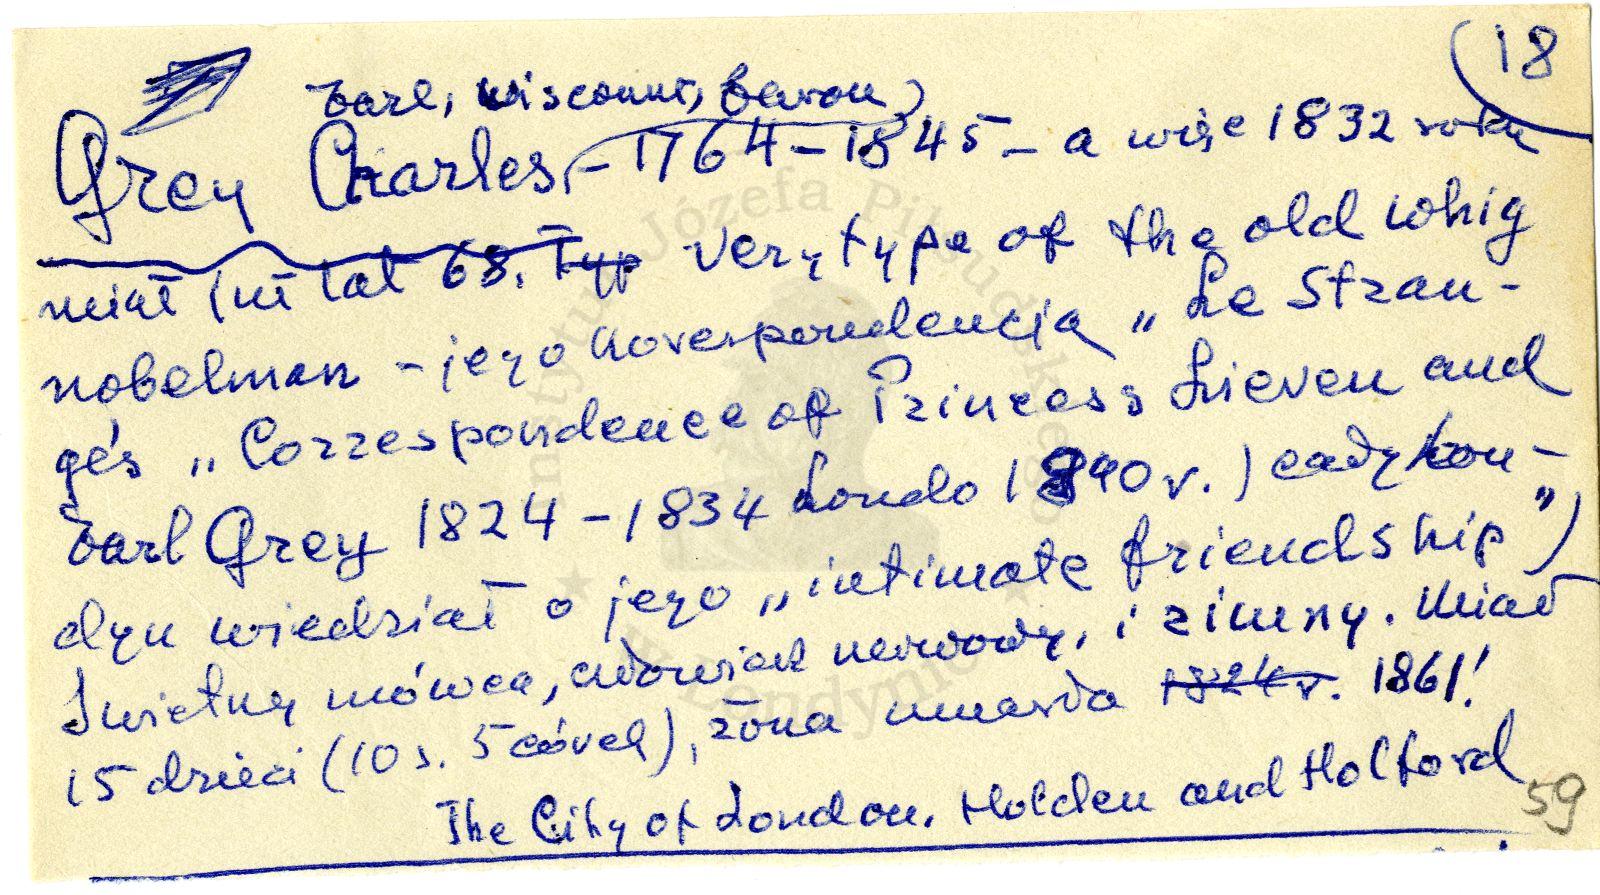 18
Earl, wiscount, baron
Grey Charles, - 1764 - 1845 - a więc 1832 roku
miał już lat 68. Typ Very type of the old whig
nobelman - jego korespondencja „Le Stran-
gés „Correspondence of Princess Lieven and
Earl Grey 1824 - 1834 Londo 1890 r.) cały Lon-
dyn wiedział o jego „intimate friendship")
Świetny mówca, człowiek nerwowy, i zimny. Miał
15 dzieci (10 s. 5 córek), żona umarła 1824 r. 1861!
The City of London. Holden and Holford
59
Instytut Józefa Piłsudskiego
w Londynie